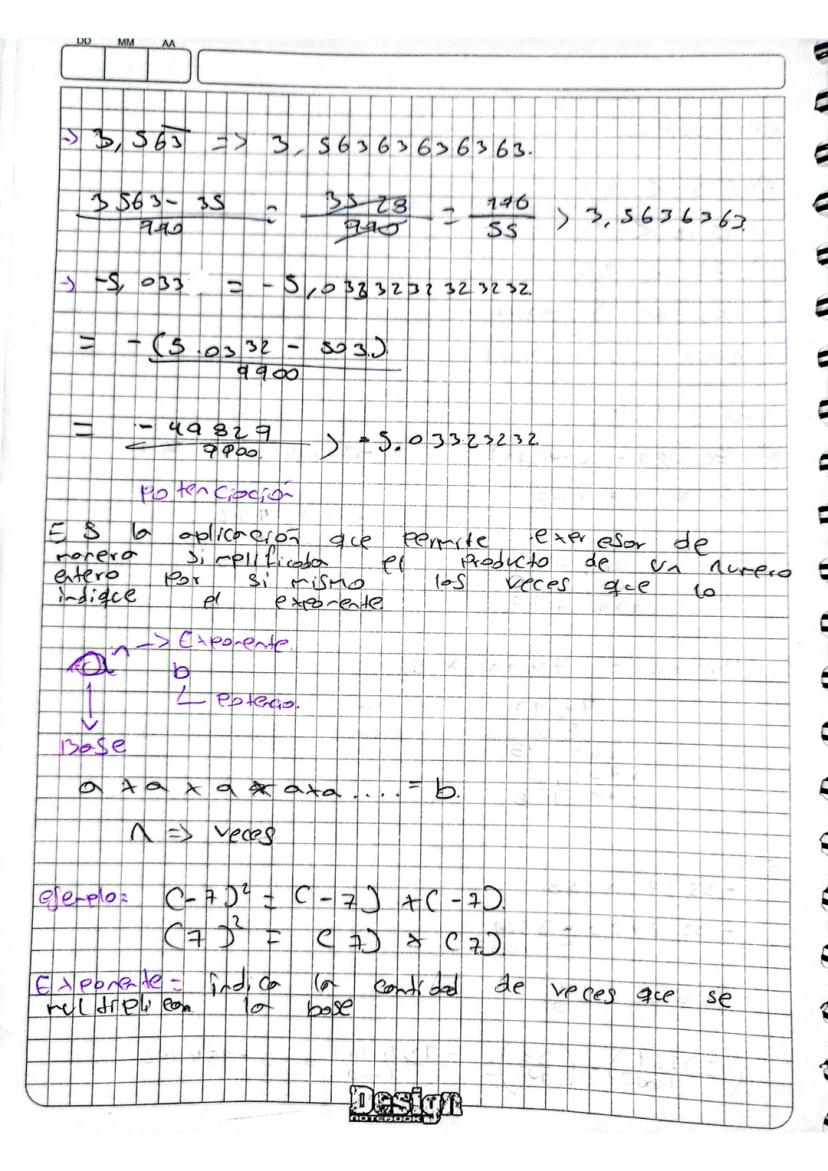 DD MM AA
→ 3,563 => 3,563636363 63.
3563 - 35 / 990 = 3528 / 990 = 196 / 55 > 3,5636363
→ -5,033 = -5,0333232323232
= -(5.0332 - 503) / 9900
= -49829 / 9900 > -5.03323232
potenciación
ES la aplicación que permite expresar de
manera simplificada el producto de un numero
entero por si mismo las veces que lo
indique el exponente
a n -> Exponente.
b
potencia.
Base
a x a x a x a x a .... = b.
n => veces
ejemplo: (-7)² = (-7) x (-7).
(7)² = (7) x (7)
Exponente = indica la cantidad de veces que se
multiplican la base
Design
NOTEBOOK